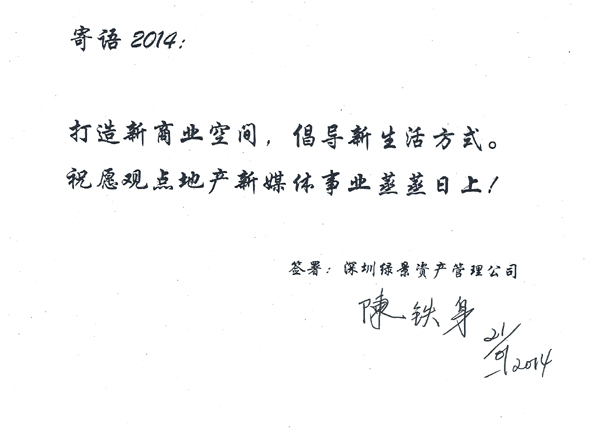 寄语 2014:
打造新商业空间，倡导新生活方式。
祝愿观点地产新媒体事业蒸蒸日上！
签署：深圳绿景资产管理公司
陳铁身
21/01 2014